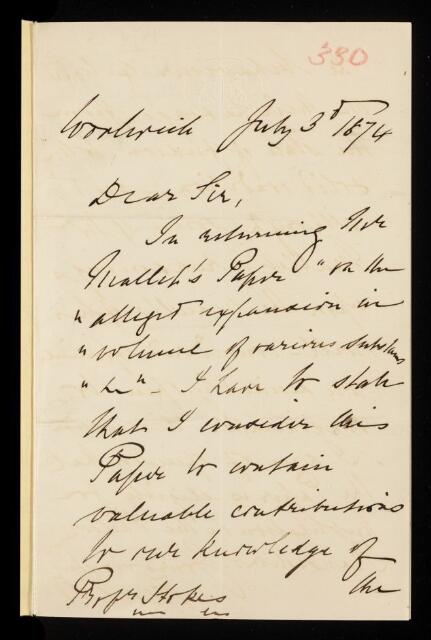 330
Woolwich July 3d 1874
Dear Sir,
In returning Mr
Mallet's Paper "on the
"alleged expansion in
"volume of various substances
"&c" - I have to state
that I consider this
Paper to contain
valuable contributions
to our knowledge of
the
Profr Stokes